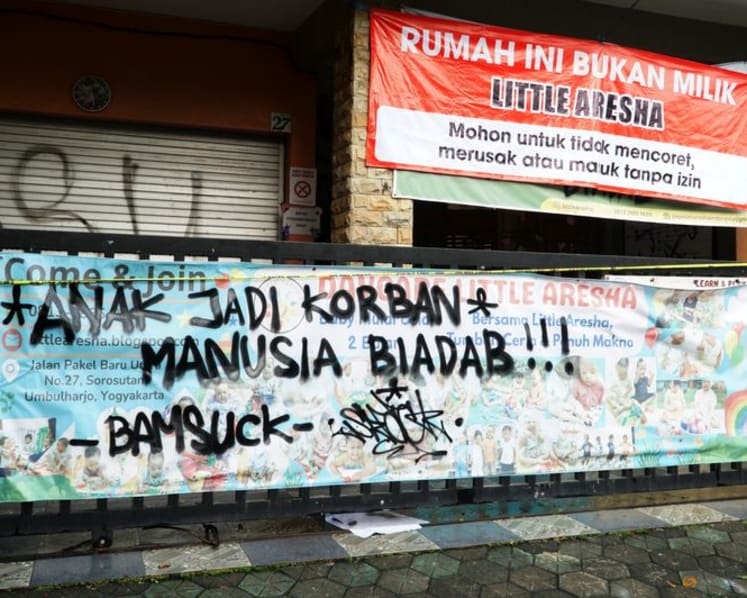 27
RUMAH INI BUKAN MILIK
LITTLE ARESHA
Mohon untuk tidak mencoret,
merusak atau masuk tanpa izin
Come & Join
DAYCARE LITTLE ARESHA
LEARN &
*ANAK JADI KORBAN*
MANUSIA BIADAB!!!
-BAMSUCK-
Bersama Little Aresha,
Tumbuh Ceria Penuh Makna
Baby Mulai
2 B
ttlearesha.blogspot.com
Jalan Pakel Baru U
No.27, Sorosutan
Umbulharjo, Yogyakarta